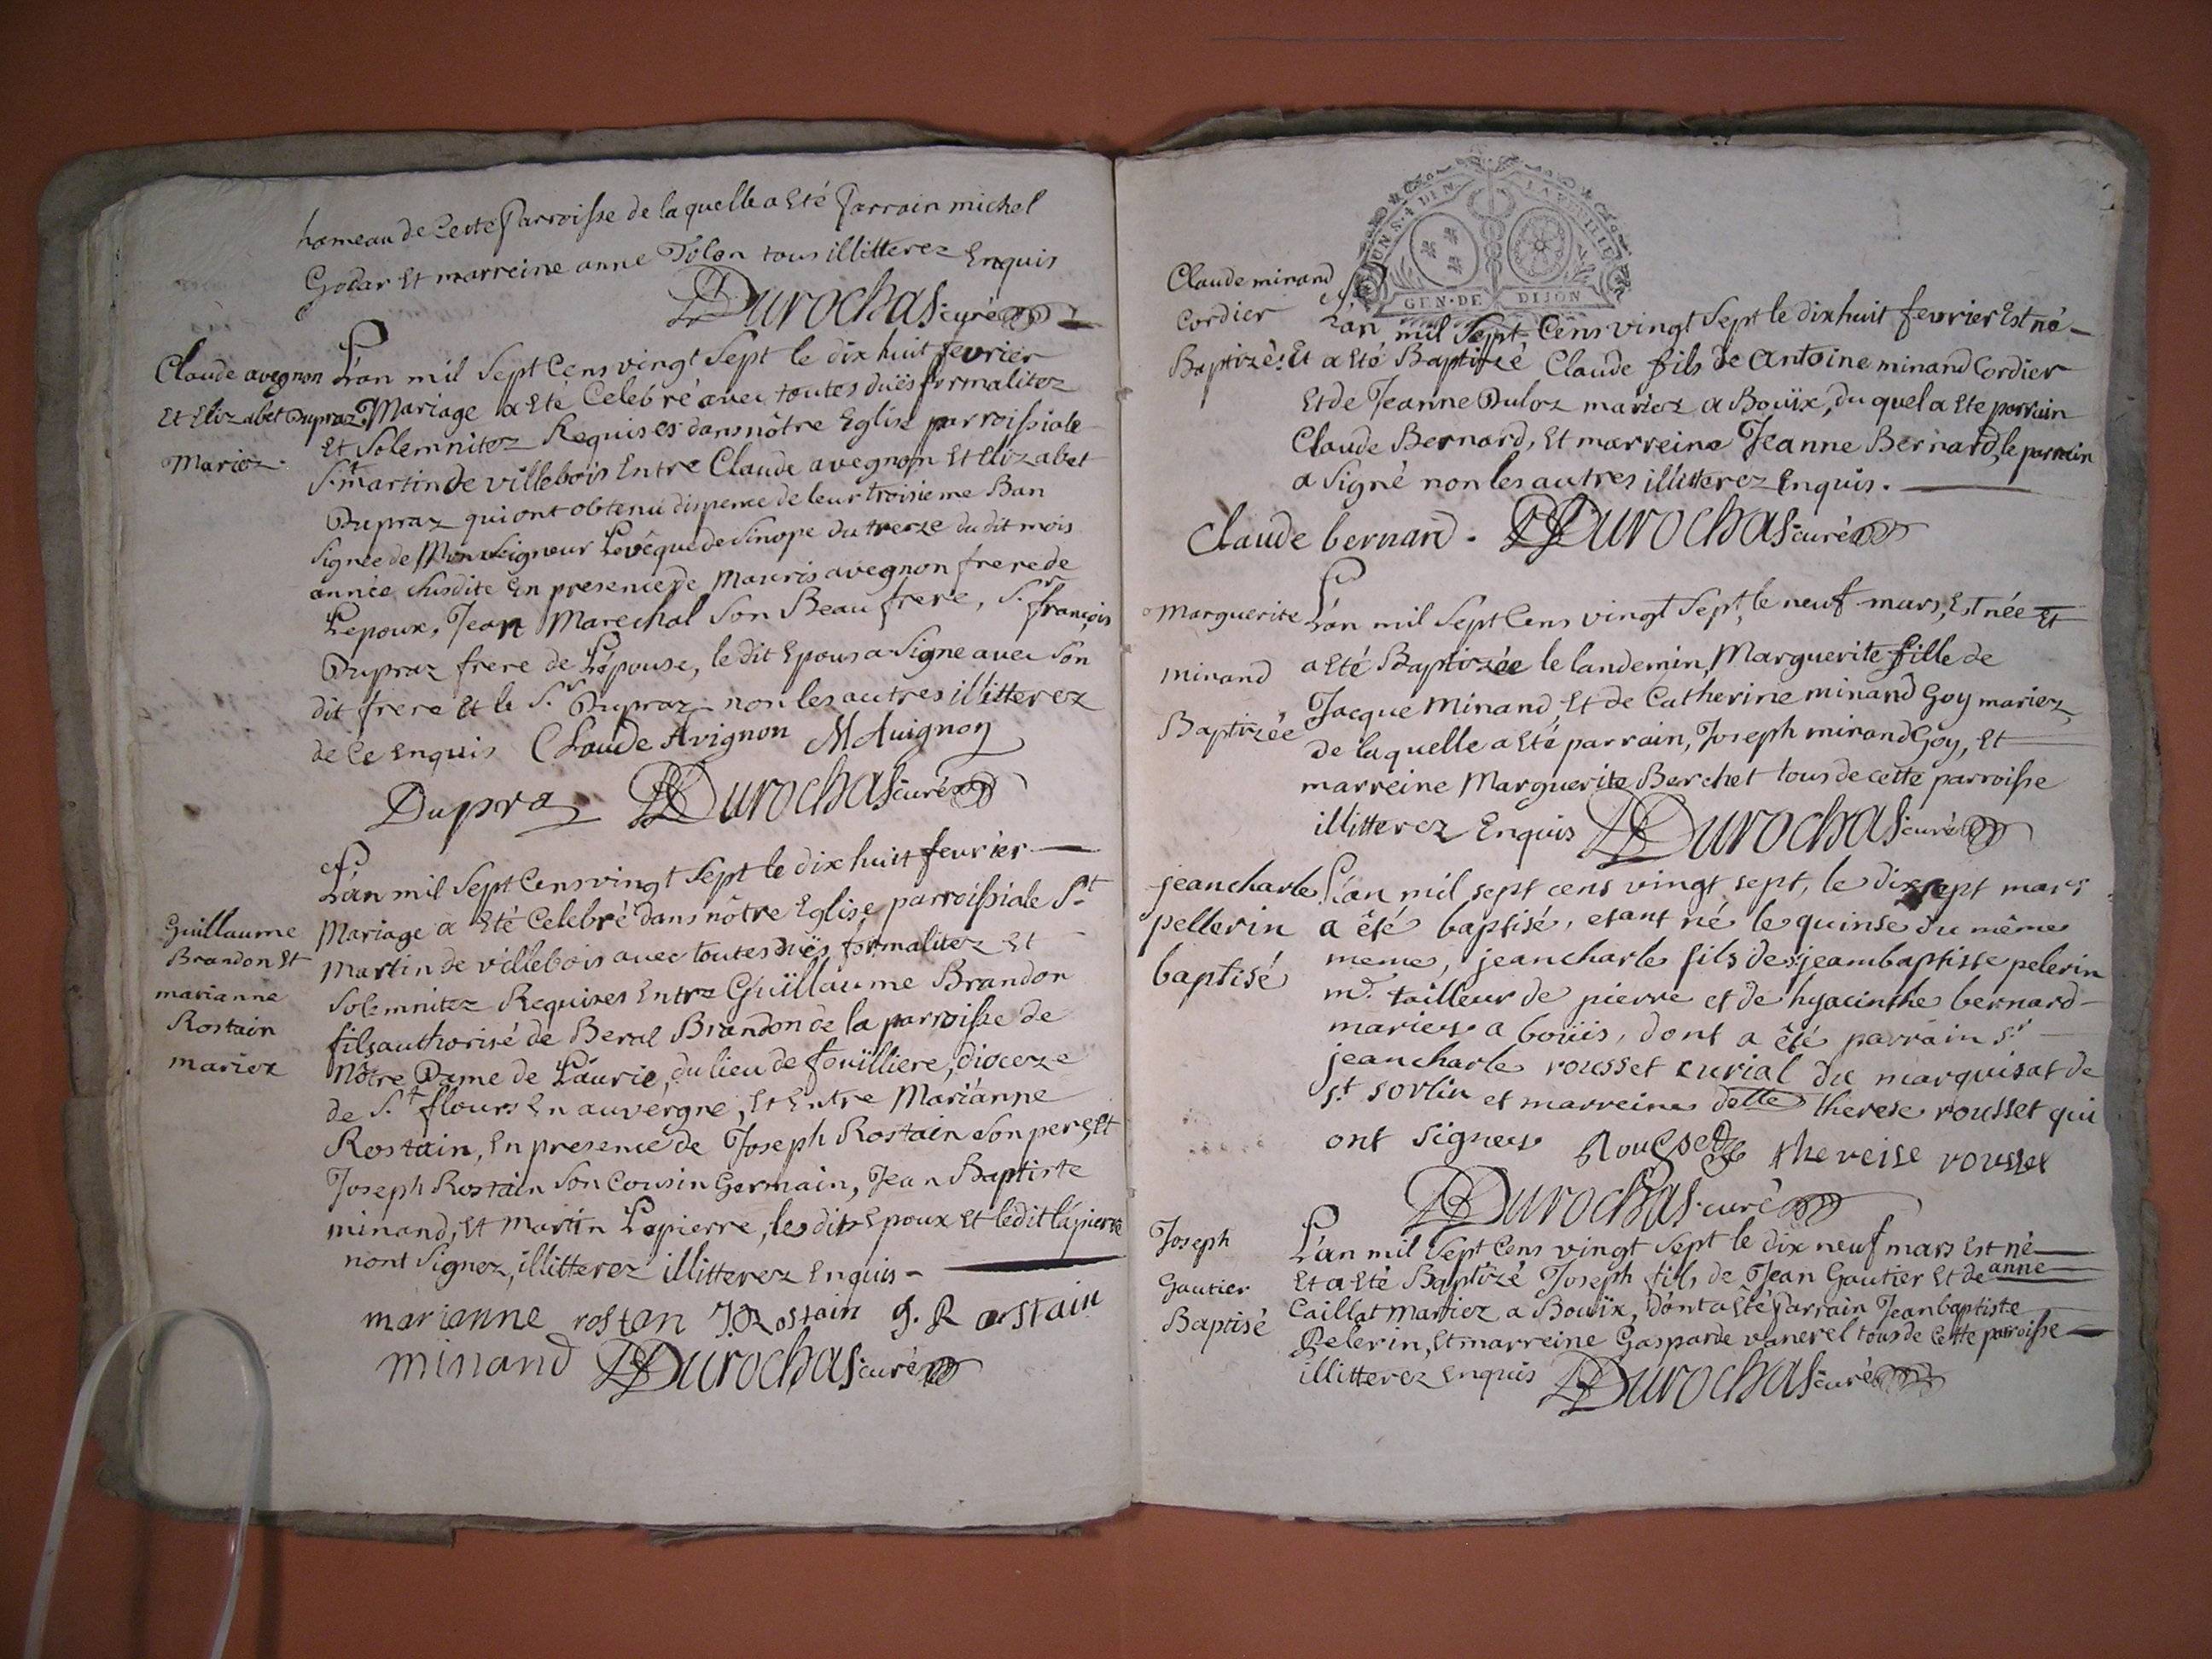 hameau de Cette Parroisse de laquelle a Eté Parrain michel
Godar Et marreine anne Tolon tous illitterez Enquis
Durochas curé
Claude avegnon
Et Elizabet Dupraz
Mariez
L'an mil Sept Cens vingt Sept le dix huit fevrier
Mariage a Eté Celebré avec toutes duës formalitez
Et Solemnitez Requises dans nôtre Eglise parroissiale
St martin de villebois Entre Claude avegnon Et Elizabet
Dupraz qui ont obtenu dispence de leur troisieme Ban
Signée de Monseigneur Levêque de Sinope du treze du dit mois
année Susdite En presence de Mauris avegnon frere de
Lepoux, Jean Marechal Son Beau frere, Sr françois
Dupraz frere de Lépouse, le dit Epoux a Signe avec Son
dit frere Et le Sr Dupraz non les autres illitterez
de Ce Enquis Claude Avignon M Avignon
Dupraz Durochas curé
Guillaume
Brandon Et
marianne
Rostain
mariez
L'an mil Sept Cens vingt Sept le dix huit fevrier
Mariage a Eté Celebré dans nôtre Eglise parroissiale St
Martin de villebois avec toutes duës formalitez Et
Solemnitez Requises Entre Guillaume Brandon
fils authorisé de Beral Brandon de la parroisse de
Nôtre Dame de Laurie, du lieu de fouïlliere, dioceze
de St flours En auvergne, Et Entre Marianne
Rostain, En presence de Joseph Rostain Son pere, Et
Joseph Rostain Son Cousin Germain, Jean Baptiste
minand, Et Martin Lapierre, les dits Epoux Et ledit lapierre
nont Signez, illitterez illitterez Enquis
marianne rostan J. Rostain J. Rostain
minand Durochas curé
GEN. DE DIJON
Claude minand
Cordier
Baptizé
L'an mil Sept Cens vingt Sept le dix huit fevrier Est né
Et a Eté Baptizé Claude fils de Antoine minand Cordier
Et de Jeanne Duloz mariez a Bouïx, du quel a Ete parrain
Claude Bernard, Et marreine Jeanne Bernard, le parrain
a Signé non les autres illitterez Enquis.
Claude bernard. Durochas curé
Marguerite
minand
Baptizée
L'an mil Sept Cens vingt Sept, le neuf mars, Est née Et
a Eté Baptizée le landemin, Marguerite fille de
Jacque Minand, Et de Catherine minand Goy mariez,
de laquelle a Eté parrain, Joseph minand Goy, Et
marreine Marguerite Berchet tous de cette parroisse
illitterez Enquis Durochas curé
jeancharle
pellerin
baptisé
L'an mil sept cens vingt sept, le dix sept mars
a été baptisé, etant né le quinse du même
meme, jeancharle fils de jeambaptisse pelerin
md. tailleur de pierre et de hyacinthe bernard
mariez a bouïs, dont a êté parrain sr
jeancharle rousset curial du marquisat de
st sorlin et marreine dlle therese rousset qui
ont signez Rousset thereise rousset
Durochas curé
Joseph
Gautier
Baptisé
L'an mil Sept Cens vingt Sept le dix neuf mars Est né
Et a Eté Baptizé Joseph fils de Jean Gautier Et de anne
Caillat Mariez a Bouïx, dont a Eté Parrain Jean baptiste
Pelerin, Et marreine Gasparde vanerel tous de Cette parroisse
illitterez Enquis Durochas curé